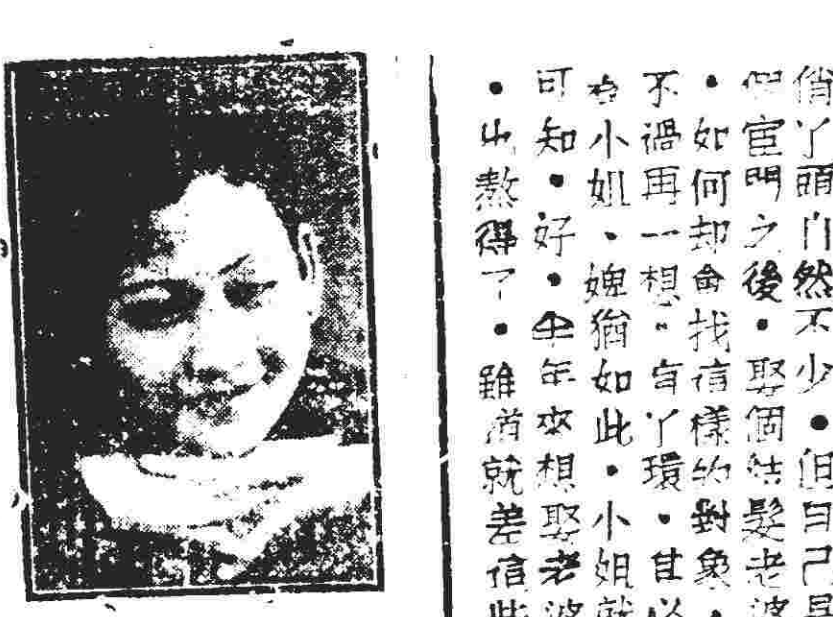 俏丫頭自然不少・但自己是
官門之後・娶個結髮老婆
・如何却會找這樣的對象・
不過再一想・有丫環・甘以
有小姐、婢猶如此・小姐就
可知・好・全年來想娶老婆
・也熬得了・難道就差這些